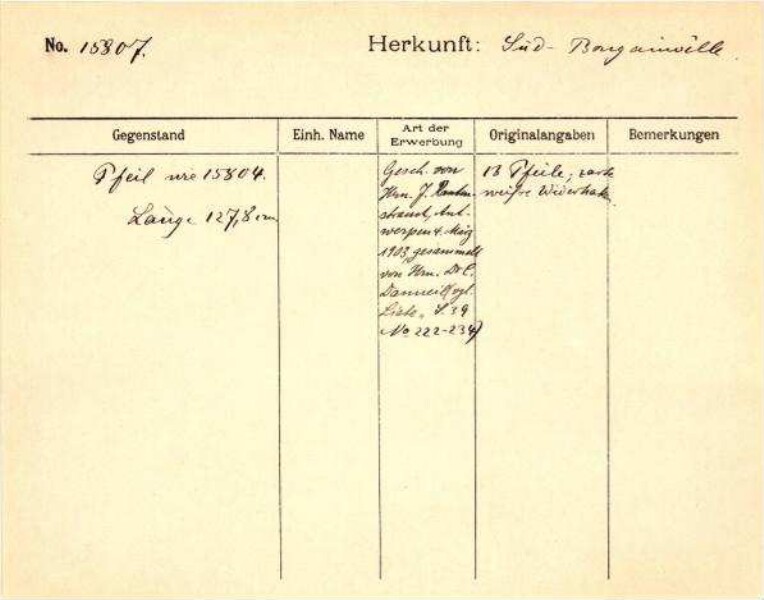 No. 15807.
Herkunft: Süd-Bougainville.
Gegenstand
Einh. Name
Art der Erwerbung
Originalangaben
Bemerkungen
Pfeil wie 15804.
Länge 127,8 cm
Gesch. von
Hrn. J. Rauten-
strauch, Ant-
werpen 4. März
1903, gesammelt
von Hrn. Dr C.
Danneil (vgl.
Liste, S. 39
No 222-234)
13 Pfeile; zarte
weisse Widerhaken